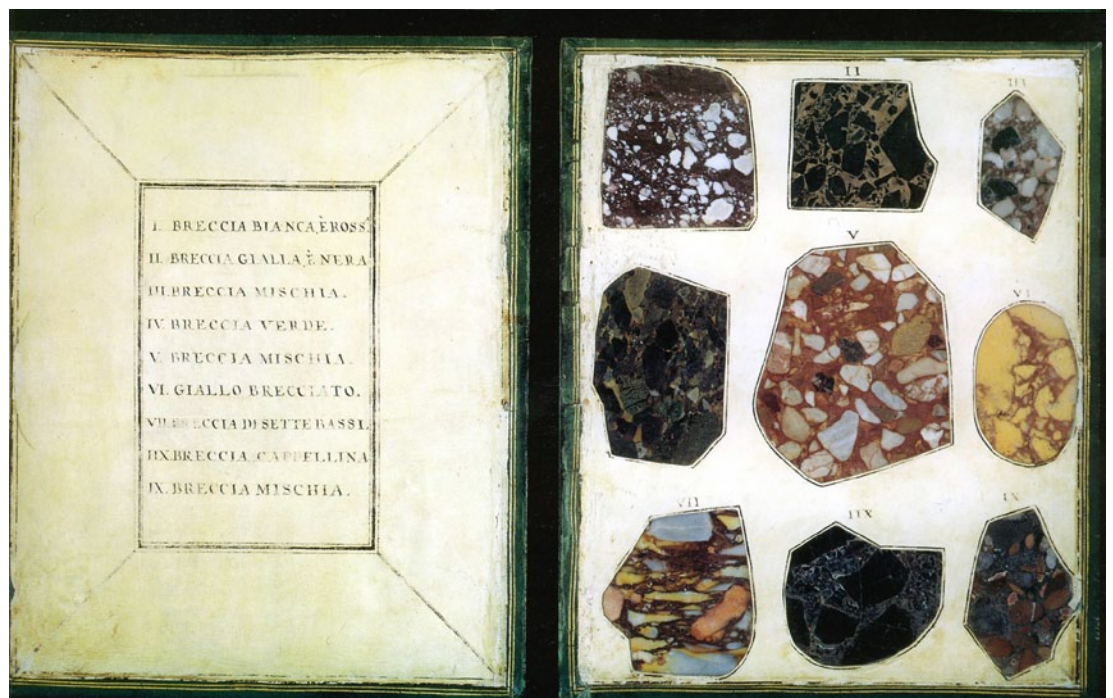 I. BRECCIA BIANCA, È ROSS.
II. BRECCIA GIALLA, È NERA
III. BRECCIA MISCHIA.
IV. BRECCIA VERDE.
V. BRECCIA MISCHIA.
VI. GIALLO BRECCIATO.
VII. BRECCIA DI SETTE BASSI.
IIX. BRECCIA CAPPELLINA
IX. BRECCIA MISCHIA.
II
III
V
VI
VII
IIX
IX